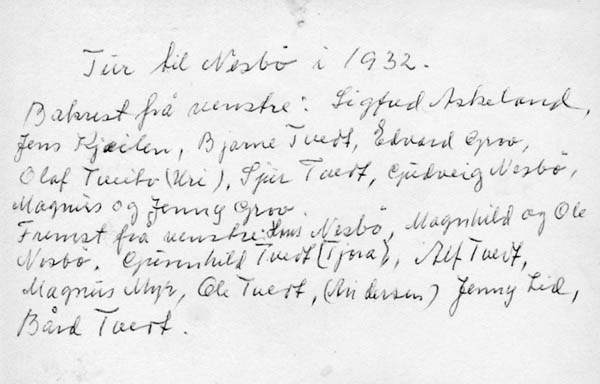 Tur til Nesbö i 1932.
Bakrest frå venstre: Sigfred Askeland,
Jens Kjeilen, Bjarne Tvedt, Edvard Grov,
Olaf Tveito (Uri), Sjur Tvedt, Gudveig Nesbö,
Magnus og Jenny Grov.
Fremst frå venstre: Nesbö, Magnhild og Ole
Nesbö, Gunnhild Tvedt (Tjora), Alf Tvedt,
Magnus Myr, Ole Tvedt, (Andersen) Jenny Lid,
Bård Tvedt.